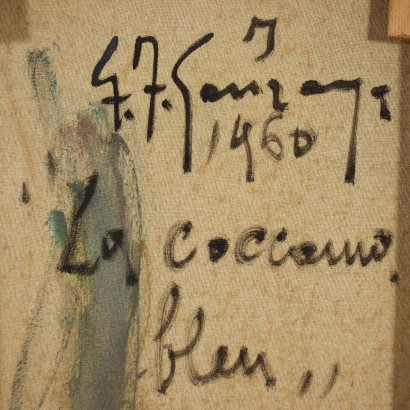 G. F. Gonzaga
1960
La coccarda
bleu „